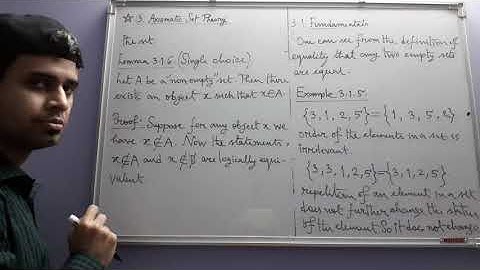 ☆ 3. Axiomatic Set Theory
The set
Lemma 3.1.6 (Single choice)
Let A be a "non empty" set. Then there
exists an object x such that x∈A.
Proof:- Suppose for any object x we
have x∉A. Now the statements,
x∉A and x∉∅ are logically equi-
valent
3.1. Fundamentals
One can see from the definition of
equality that any two empty sets
are equal.
Example 3.1.5:
{3, 1, 2, 5} = {1, 3, 5, 2}
order of the elements in a set is
irrelevant.
{3, 3, 1, 2, 5} = {3, 1, 2, 5}
repetition of an element in a set
does not further change the status
of the element. So it does not change